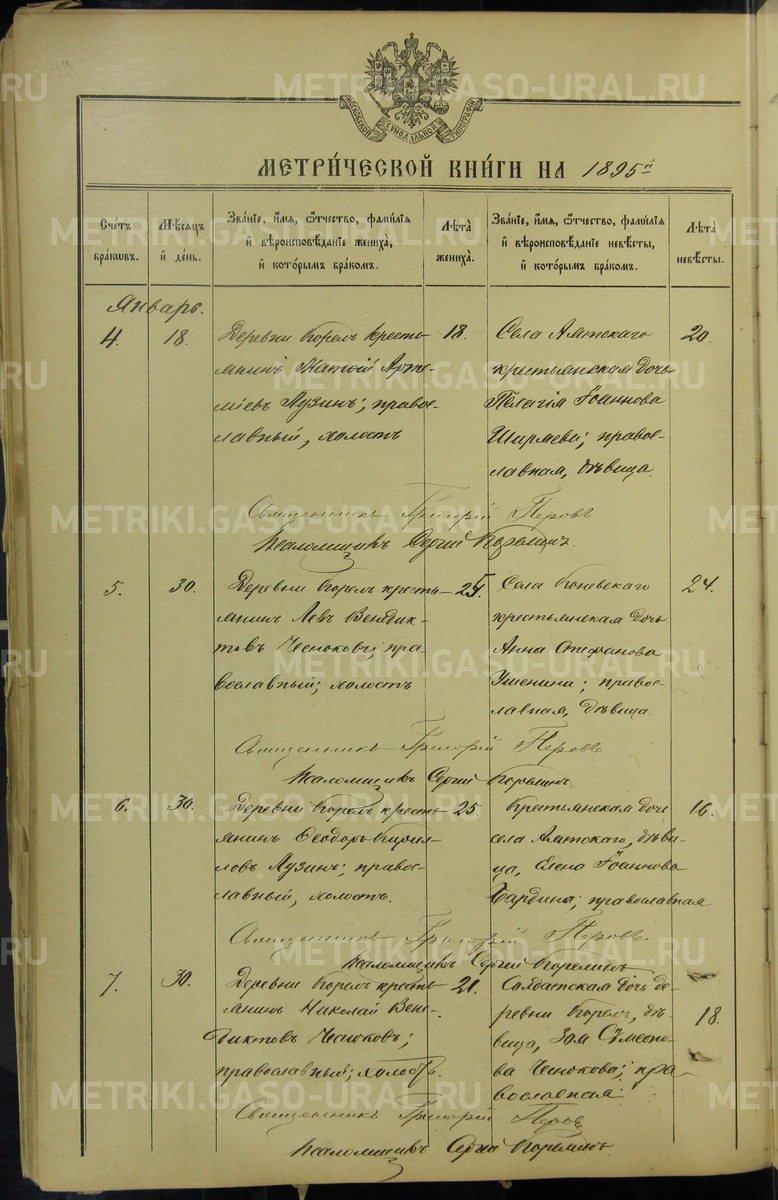 МОСКОВСКОЙ СѴНОДАЛЬНОЙ ТИПОГРАФІИ
МЕТРИ́ЧЕСКОЙ КНИ́ГИ НА 1895й
Сче́тъ бра́ковъ.
Мѣ́сяцъ и҆ де́нь.
Зва́нїе, и҆́мя, ѻ҆́тчество, фами́лїя и҆ вѣроисповѣ́данїе жениха̀, и҆ кото́рымъ бра́комъ.
Лѣ́та жениха̀.
Зва́нїе, и҆́мя, ѻ҆́тчество, фами́лїя и҆ вѣроисповѣ́данїе невѣ́сты, и҆ кото́рымъ бра́комъ.
Лѣ́та невѣ́сты.
Январь.
4. 18.
Деревни Корелъ кресть-
янинъ Матѳій Арте-
міевъ Лузинъ; право-
славный, холостъ
18.
Села Аятскаго
крестьянская дочь
Пелагія Іоаннова
Ширяева; право-
славная, дѣвица.
20.
Священникъ Григорій Перовъ
Псаломщикъ Сергій Корелинъ.
5. 30.
Деревни Корелъ кресть-
янинъ Левъ Бендик-
товъ Чесноковъ; пра-
вославный; холостъ
25.
Села Коневскаго
крестьянская дочь
Анна Стефанова
Ушенина; право-
славная, дѣвица.
24.
Священникъ Григорій Перовъ
Псаломщикъ Сергій Корелинъ.
6. 30.
Деревни Корелъ кресть-
янинъ Ѳеодоръ Кирил-
ловъ Лузинъ; право-
славный, холостъ.
25.
Крестьянская дочь
села Аятскаго, дѣви-
ца, Елена Іоаннова
Бардина; православная
16.
Священникъ Григорій Перовъ.
Псаломщикъ Сергій Корелинъ
7. 30.
Деревни Корелъ кресть-
янинъ Николай Вене-
диктовъ Чесноковъ;
православный; холостъ.
21.
Солдатская дочь де-
ревни Корелъ, дѣ-
вица, Зоя Сѵмеоно-
ва Чеснокова; пра-
вославная.
18.
Священникъ Григорій Перовъ
Псаломщикъ Сергій Корелинъ.
METRIKI.GASO-URAL.RU